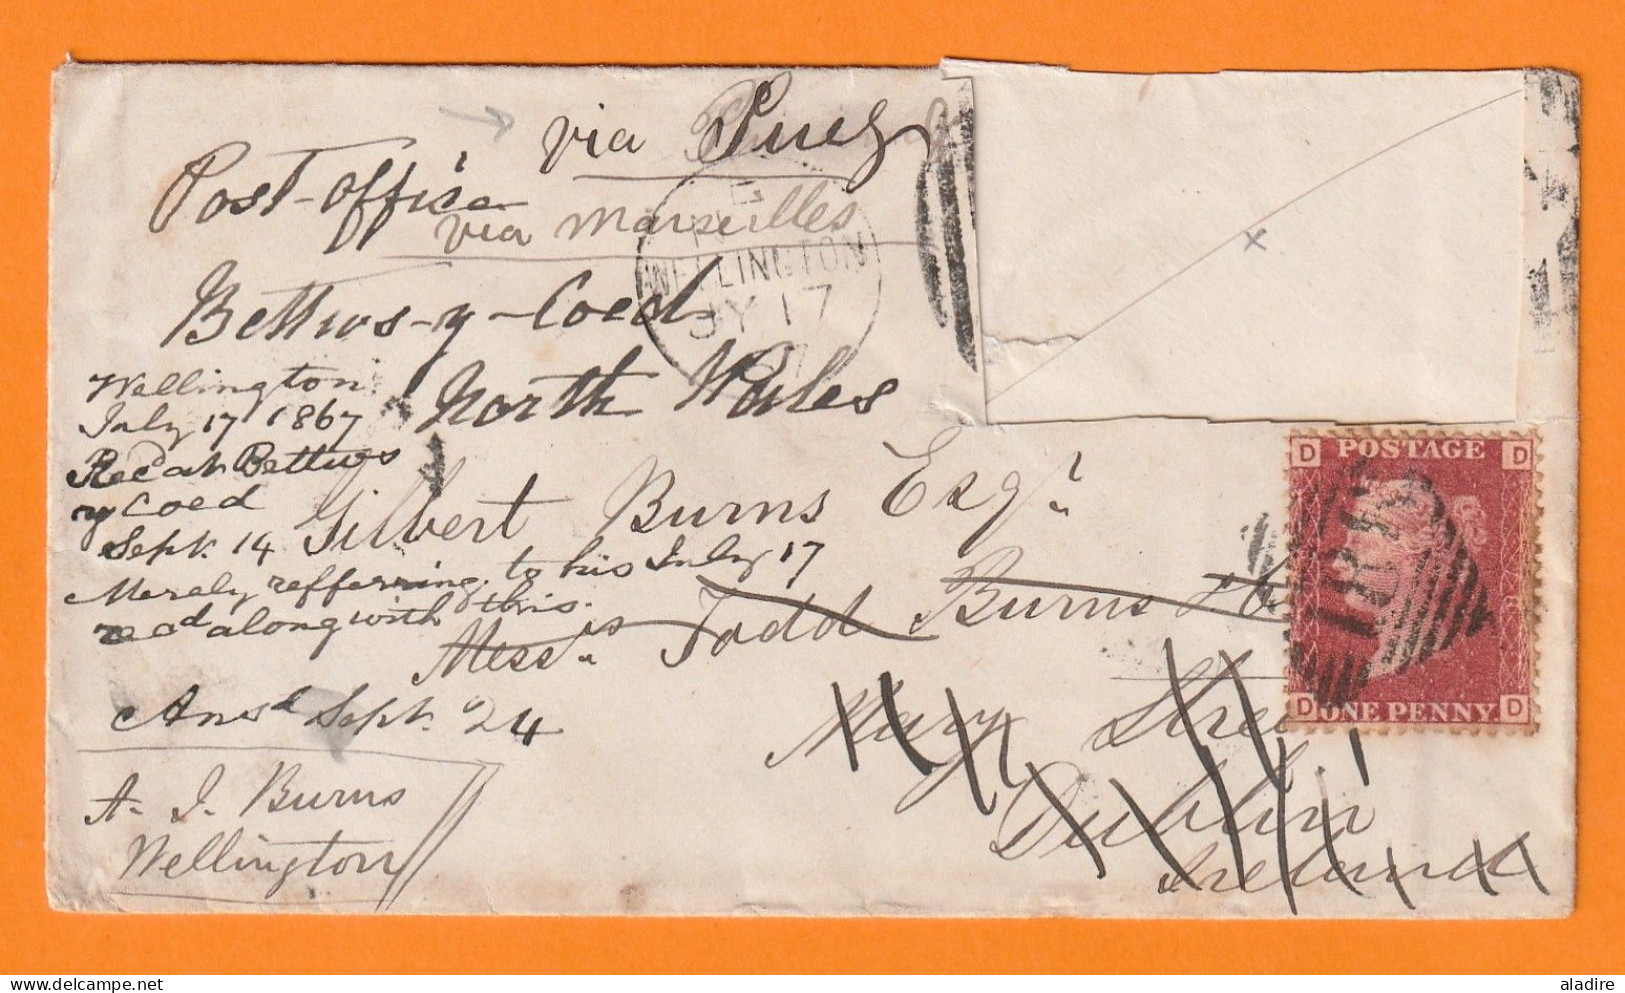 via Suez
Post-office
via Marseilles
Bettws-y-Coed
North Wales
WELLINGTON
JY 17
67
Wellington
July 17 1867
Recd at Bettws
y Coed
Sept. 14
Merely refferring to his July 17
recd along with this.
Ansd Sept. 24
Gilbert Burns Esqr
Messrs Todd Burns &
Mary Street
Dublin
Ireland
A. J. Burns
Wellington
D POSTAGE D
D ONE PENNY D
aladire